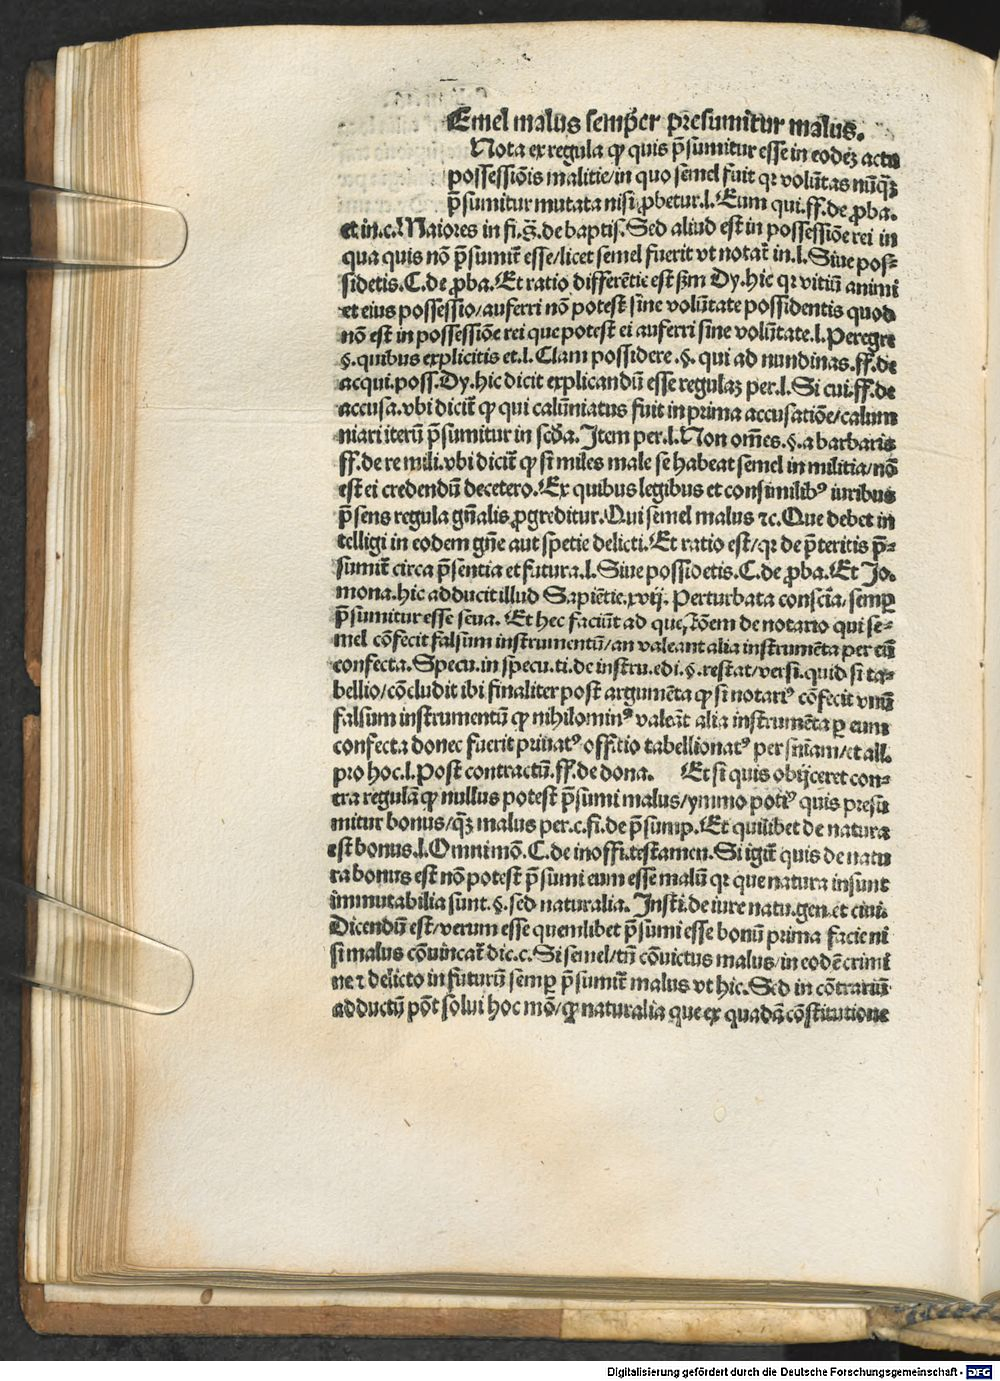 Emel malus semper presumitur malus.
Nota ex regula ꝙ quis p̄sumitur esse in eodeꝫ actu
possessiōis malitie/in quo semel fuit qꝛ volūtas nūqꝫ̄
p̄sumitur mutata nisi ꝓbetur.l.Eum qui.ff.de ꝓba.
et in.c.Maiores in fi.§.de baptis.Sed aliud est in possessiōe rei in
qua quis nō p̄sumit̄ esse/licet semel fuerit vt notat̄ in.l.Siue pos⸗
sidetis.C.de ꝓba.Et ratio differētie est ẜm Dy.hic qꝛ vitiū animi
et eius possessio/auferri nō potest sine volūtate possidentis quod
nō est in possessiōe rei que potest ei auferri sine volūtate.l.Peregre
§.quibus explicitis et.l.Clam possidere.§.qui ad nundinas.ff.de
acqui.poss.Dy.hic dicit explicandū esse regulaꝫ per.l.Si cui.ff.de
accusa.vbi dicit̄ ꝙ qui calūniatus fuit in prima accusatiōe/calum
niari iterū p̄sumitur in scd̄a.Item per.l.Non om̄es.§.a barbaris
ff.de re mili.vbi dicit̄ ꝙ si miles male se habeat semel in militia/nō
est ei credendū decetero.Ex quibus legibus et consimilibꝰ iuribus
p̄sens regula gn̄alis ꝓgreditur.Qui semel malus ⁊c.Que debet in
telligi in eodem gn̄e aut spetie delicti.Et ratio est/qꝛ de p̄teritis p̄⸗
sumit̄ circa p̄sentia et futura.l.Siue possidetis.C.de ꝓba.Et Jo.
mona.hic adducit illud Sapiētie.xvij.Perturbata consciā/semꝑ
p̄sumitur esse seua.Et hec faciūt ad que⟨st⟩ōem de notario qui se⸗
mel cōfecit falsum instrumentū/an valeant alia instrumēta per eū
confecta.Specu.in specu.ti.de instru.edi.§.restat/versi.quid si ta⸗
bellio/cōcludit ibi finaliter post argumēta ꝙ si notariꝰ cōfecit vnū
falsum instrumentū ꝙ nihilominꝰ valeāt alia instrumēta ꝑ eum
confecta donec fuerit priuatꝰ offitio tabellionatꝰ per sn̄iam/et all.
pro hoc.l.Post contractū.ff.de dona. Et si quis obijceret con⸗
tra regulā ꝙ nullus potest p̄sumi malus/ymmo potiꝰ quis presu
mitur bonus/qꝫ̄ malus per.c.fi.de p̄sump.Et quilibet de natura
est bonus.l.Omnimō.C.de inoffi.testamen.Si igit̄ quis de natu
ra bonus est nō potest p̄sumi eum esse malū qꝛ que natura insunt
immutabilia sunt.§.sed naturalia.Insti.de iure natu.gen.et ciui.
Dicendū est/verum esse quemlibet p̄sumi esse bonū prima facie ni
si malus cōuincat̄ dic.c.Si semel/tn̄ cōuictus malus/in eodē crimi
ne ⁊ delicto in futurū semꝑ p̄sumit̄ malus vt hic.Sed in cōtrarium
adductū pōt solui hoc mō/ꝙ naturalia que ex quadā cōstitutione
Digitalisierung gefördert durch die Deutsche Forschungsgemeinschaft - DFG